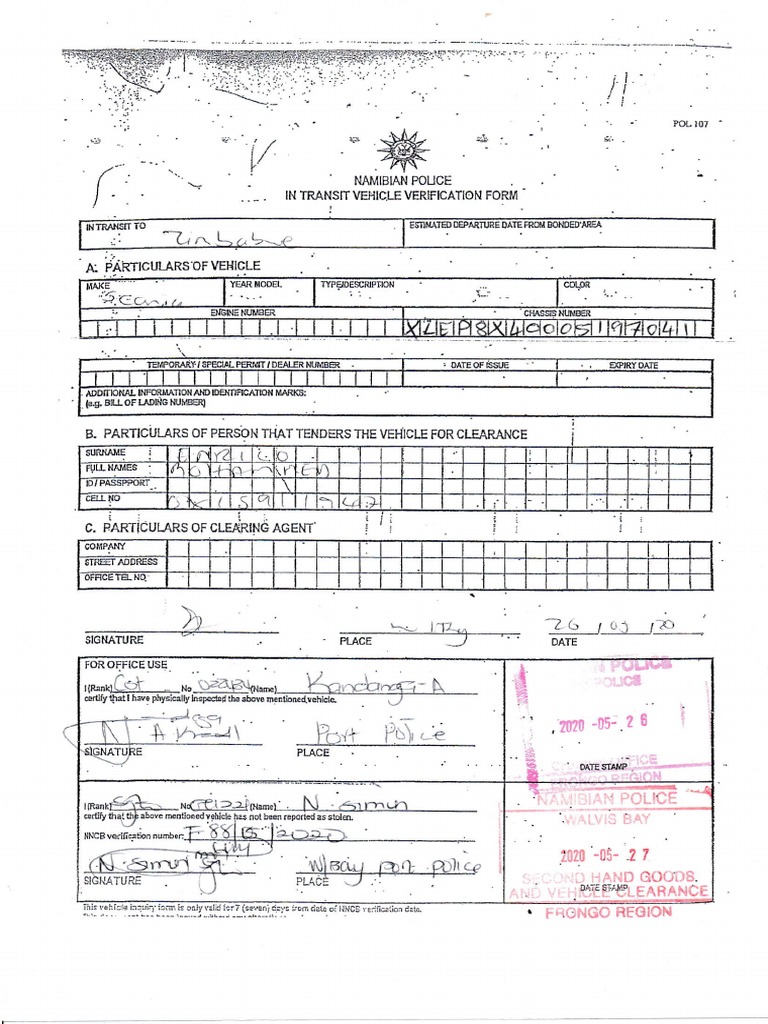 POL 107
NAMIBIAN POLICE
IN TRANSIT VEHICLE VERIFICATION FORM
IN TRANSIT TO
ESTIMATED DEPARTURE DATE FROM BONDED AREA
Zimbabwe
A. PARTICULARS OF VEHICLE
MAKE YEAR MODEL TYPE/DESCRIPTION COLOR
Scania
ENGINE NUMBER CHASSIS NUMBER
XLEP8X40005197041
TEMPORARY / SPECIAL PERMIT / DEALER NUMBER DATE OF ISSUE EXPIRY DATE
ADDITIONAL INFORMATION AND IDENTIFICATION MARKS:
(e.g. BILL OF LADING NUMBER)
B. PARTICULARS OF PERSON THAT TENDERS THE VEHICLE FOR CLEARANCE
SURNAME ENRICO
FULL NAMES
ID / PASSPPORT
CELL NO
C. PARTICULARS OF CLEARING AGENT
COMPANY
STREET ADDRESS
OFFICE TEL NO.
SIGNATURE PLACE DATE
FOR OFFICE USE
I (Rank) Cst No (Name) Kandanga-A
certify that I have physically inspected the above mentioned vehicle.
Port Police
SIGNATURE PLACE
POLICE
POLICE
2020 -05- 26
DATE STAMP
REGION
I (Rank) Sgt No (Name) N. Simun
certify that the above mentioned vehicle has not been reported as stolen.
NNCB verification number: F 88/05/2020
N. Simun
W/Bay port police
SIGNATURE PLACE
NAMIBIAN POLICE
WALVIS BAY
2020 -05- 27
SECOND HAND GOODS
AND VEHICLE CLEARANCE
DATE STAMP
ERONGO REGION
This vehicle inquiry form is only valid for 7 (seven) days from date of NNCB verification date.